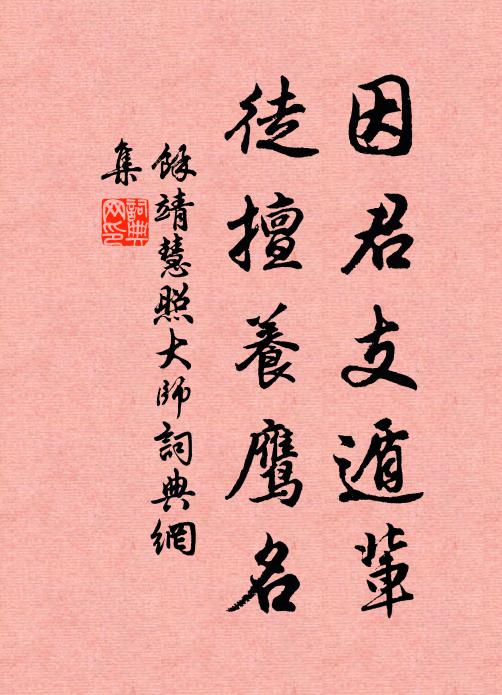 因君支遁輩
徒擅養鷹名
餘靖慧照大師詞典網
集
詞典網印